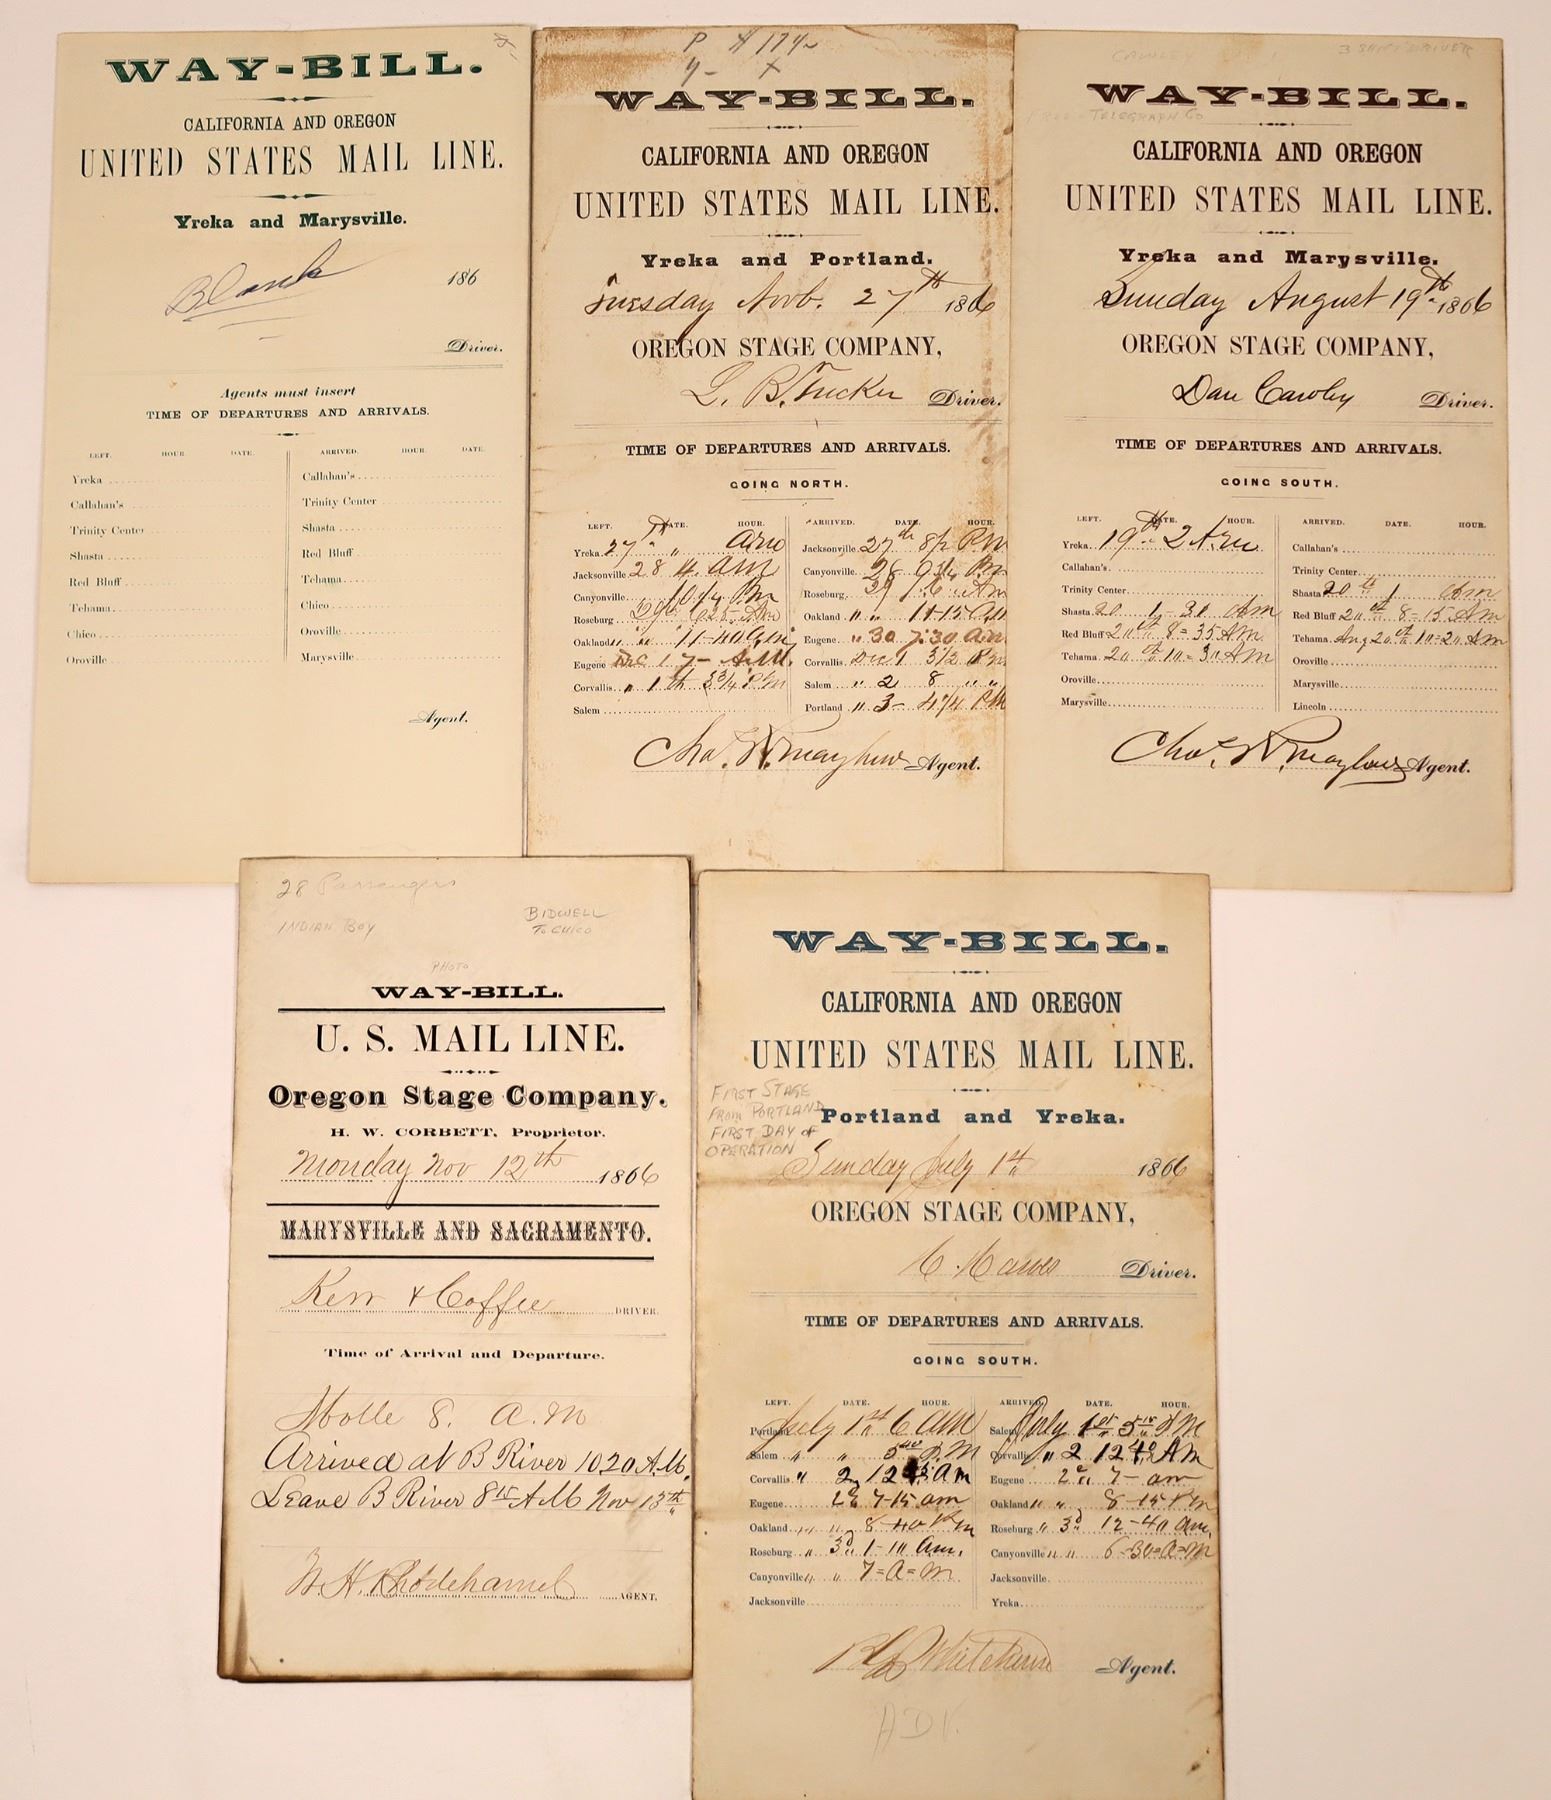 WAY-BILL.
CALIFORNIA AND OREGON
UNITED STATES MAIL LINE.
Yreka and Marysville.
Blank 186
Driver.
Agents must insert
TIME OF DEPARTURES AND ARRIVALS.
LEFT. HOUR. DATE. ARRIVED. HOUR. DATE.
Yreka Callahan's
Callahan's Trinity Center
Trinity Center Shasta
Shasta Red Bluff
Red Bluff Tehama
Tehama Chico
Chico Oroville
Oroville Marysville
Agent.
P # 174
WAY-BILL.
CALIFORNIA AND OREGON
UNITED STATES MAIL LINE.
Yreka and Portland.
Tuesday Novb. 27th 1866
OREGON STAGE COMPANY,
L. B. Tucker Driver.
TIME OF DEPARTURES AND ARRIVALS.
GOING NORTH.
LEFT. DATE. HOUR. ARRIVED. DATE. HOUR.
Yreka 27th " Jacksonville 27th 8 1/2 P.M
Jacksonville 28 4 AM Canyonville 28 9 3/4 Pm
Canyonville 10 1/4 P.m Roseburg 29 6 Am
Roseburg 29th 6 25 Am Oakland " " 11-15 Am
Oakland " " 11-40 Am Eugene " 30 7:30 Am
Eugene Dec 1 7- A.M. Corvallis Dec 1 3 1/2 Pm
Corvallis " 1th 3 3/4 P.M Salem " 2 8 " "
Salem Portland " 3- 4 1/4 P.M
Chas. W. Mayhew Agent.
CAWLEY 3 SHIRT DRIVER
TELEGRAPH CO
WAY-BILL.
CALIFORNIA AND OREGON
UNITED STATES MAIL LINE.
Yreka and Marysville.
Sunday August 19th 1866
OREGON STAGE COMPANY,
Dan Cawley Driver.
TIME OF DEPARTURES AND ARRIVALS.
GOING SOUTH.
LEFT. DATE. HOUR. ARRIVED. DATE. HOUR.
Yreka 19th 2 A.m. Callahan's
Callahan's Trinity Center
Trinity Center Shasta 20th 1 Am
Shasta 20 1-30 Am Red Bluff 20th 8-15 Am
Red Bluff 20th 8=35 AM Tehama Aug 20th 10=20 Am
Tehama 20th 10=30 AM Oroville
Oroville Marysville
Marysville Lincoln
Chas. W. Mayhew Agent.
28 Passengers
INDIAN BOY BIDWELL
TO CHICO
PHOTO
WAY-BILL.
U. S. MAIL LINE.
Oregon Stage Company.
H. W. CORBETT, Proprietor.
Monday Nov 12th 1866
MARYSVILLE AND SACRAMENTO.
Kerr & Coffee DRIVER.
Time of Arrival and Departure.
8. A.M
Arrived at B River 1020 A.M.
Leave B River 8 15 AM Nov 13th
W. H. Rhodehamel AGENT.
WAY-BILL.
CALIFORNIA AND OREGON
UNITED STATES MAIL LINE.
FIRST STAGE
FROM PORTLAND
FIRST DAY of
OPERATION
Portland and Yreka.
Sunday July 1st 1866
OREGON STAGE COMPANY,
C. Hawes Driver.
TIME OF DEPARTURES AND ARRIVALS.
GOING SOUTH.
LEFT. DATE. HOUR. ARRIVED. DATE. HOUR.
Portland July 1st 6 AM Salem July 1st 5 15 PM
Salem " " 5 40 P.M Corvallis " 2 12 40 AM
Corvallis " 2 12 am Eugene 2d 7- am
Eugene 2d 7-15 am Oakland " " 8-15 Pm
Oakland " " 8-40 Pm Roseburg " 3d 12-40 am.
Roseburg " 3d 1-10 am. Canyonville " " 6-30=a=m
Canyonville " " 7=a=m Jacksonville
Jacksonville Yreka
Agent.
ADV.